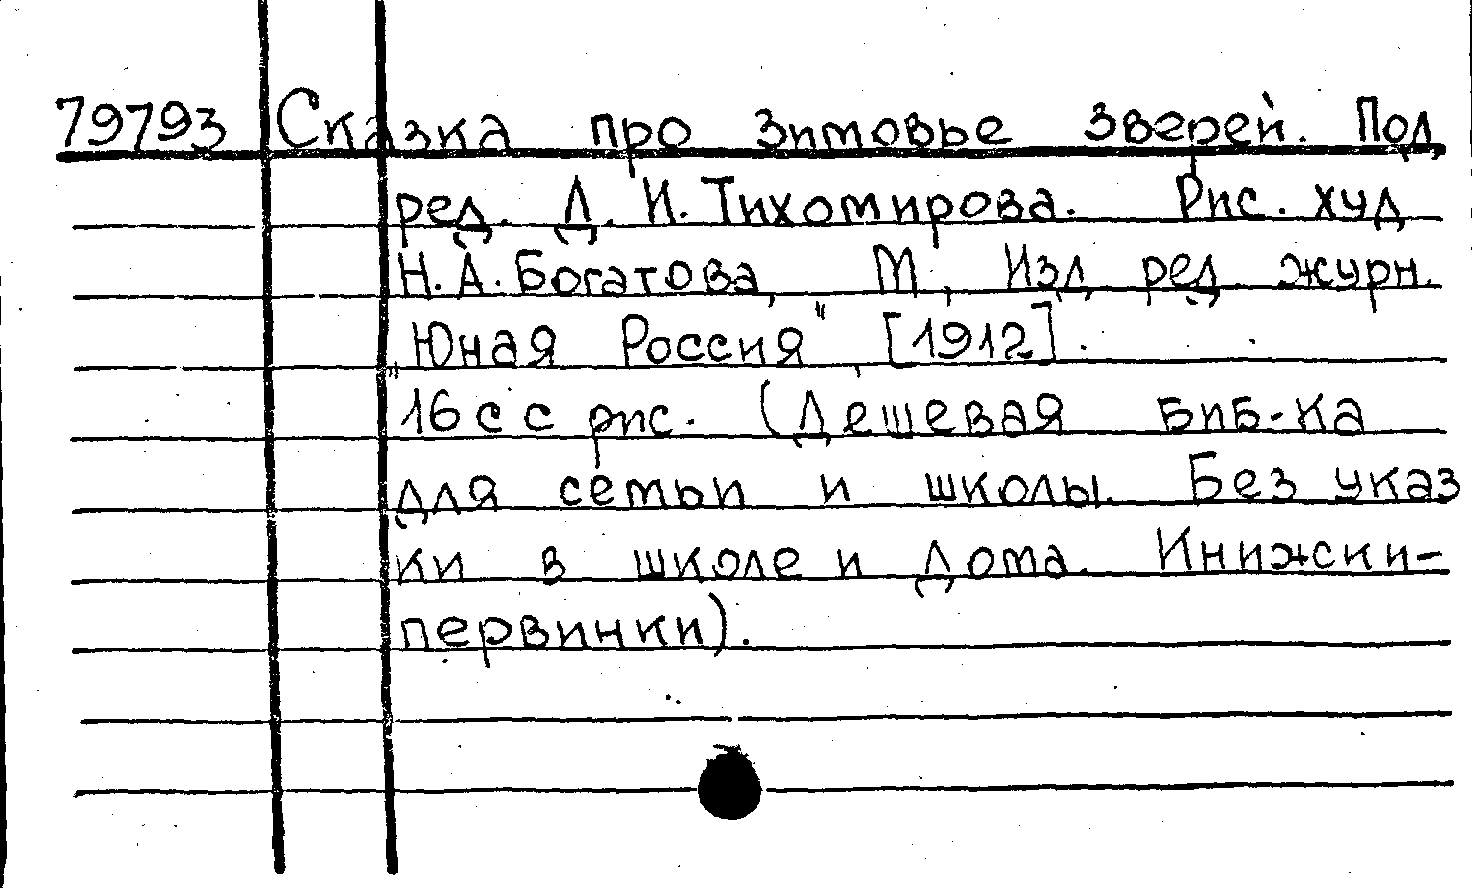 79793 Сказка про зимовье зверей. Под
ред. Д. И. Тихомирова. Рис. худ
Н. А. Богатова, М, Изд ред журн.
„Юная Россия" [1912].
16 с с рис. (Дешевая биб-ка
для семьи и школы. Без указ
ки в школе и дома. Книжки-
первинки).